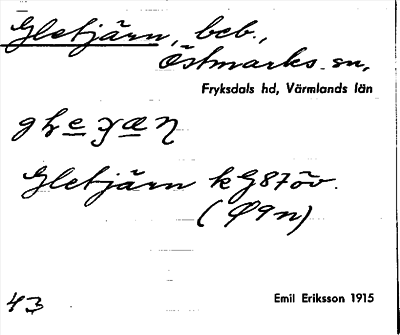 Gletjärn, beb.,
Östmarks sn,
Fryksdals hd, Värmlands län
Gletjärn kG87öv.
(Ø9n)
43
Emil Eriksson 1915